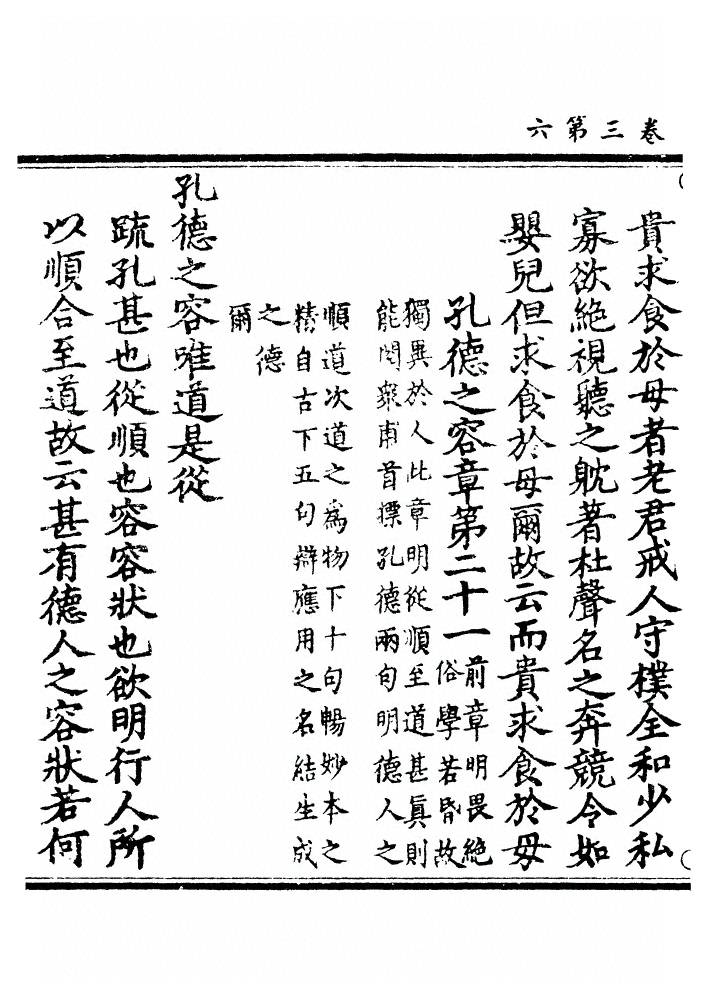 卷三第六
貴求食於母者老君戒人守樸全和少私
寡欲絕視聽之躭著杜聲名之奔競令如
嬰兒但求食於母爾故云而貴求食於母
孔德之容章第二十一
前章明畏絕
俗學若昏故
獨異於人此章明從順至道甚眞則
能閱衆甫首摽孔德兩句明德人之
順道次道之爲物下十句暢妙本之
精自古下五句辯應用之名結生成
之德
爾
孔德之容唯道是從
疏孔甚也從順也容容狀也欲明行人所
以順合至道故云甚有德人之容狀若何